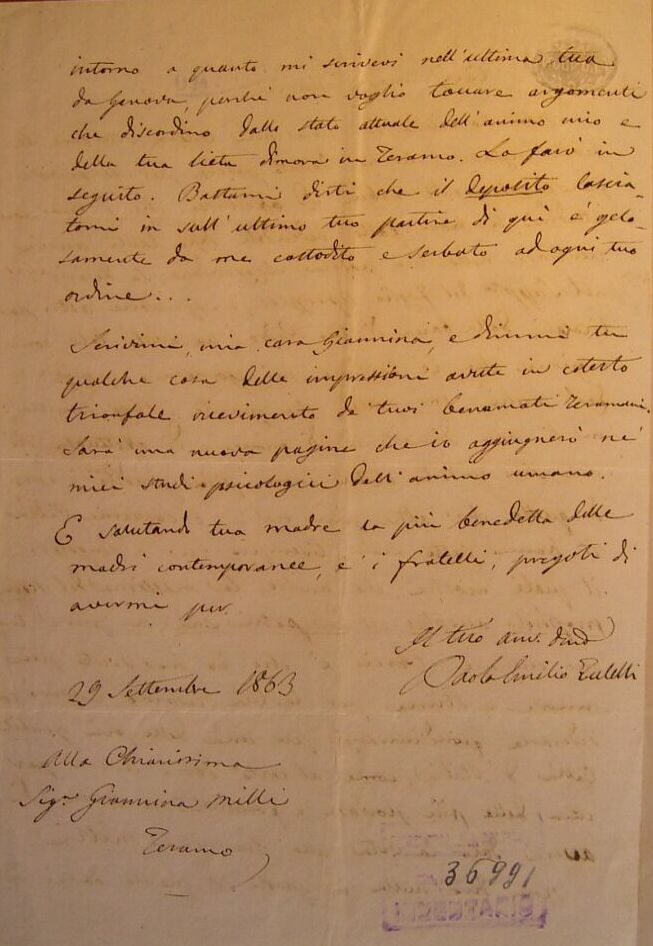 intorno a quanto mi scrivevi nell'ultima tua
da Genova, perchè non voglio toccare argomenti
che discordino dallo stato attuale dell'animo mio e
della tua lieta dimora in Teramo. Lo farò in
seguito. Bastami dirti che il deposito lascia-
tomi in sull'ultimo tuo partire di quì è gelo-
samente da me custodito e serbato ad ogni tuo
ordine...
Scrivimi, mia cara Giannina, e dimmi tu
qualche cosa delle impressioni avute in cotesto
trionfale ricevimento de' tuoi benamati Teramani.
Sarà una nuova pagina che io aggiugnerò ne'
miei studi psicologici dell'animo umano.
E salutando tua madre la più benedetta delle
madri contemporanee, e i fratelli, pregoti di
avermi per
Il tuo
Paolo Emilio
29 Settembre 1863
Alla Chiarissima
Sig.ra Giannina Milli
Teramo
36991